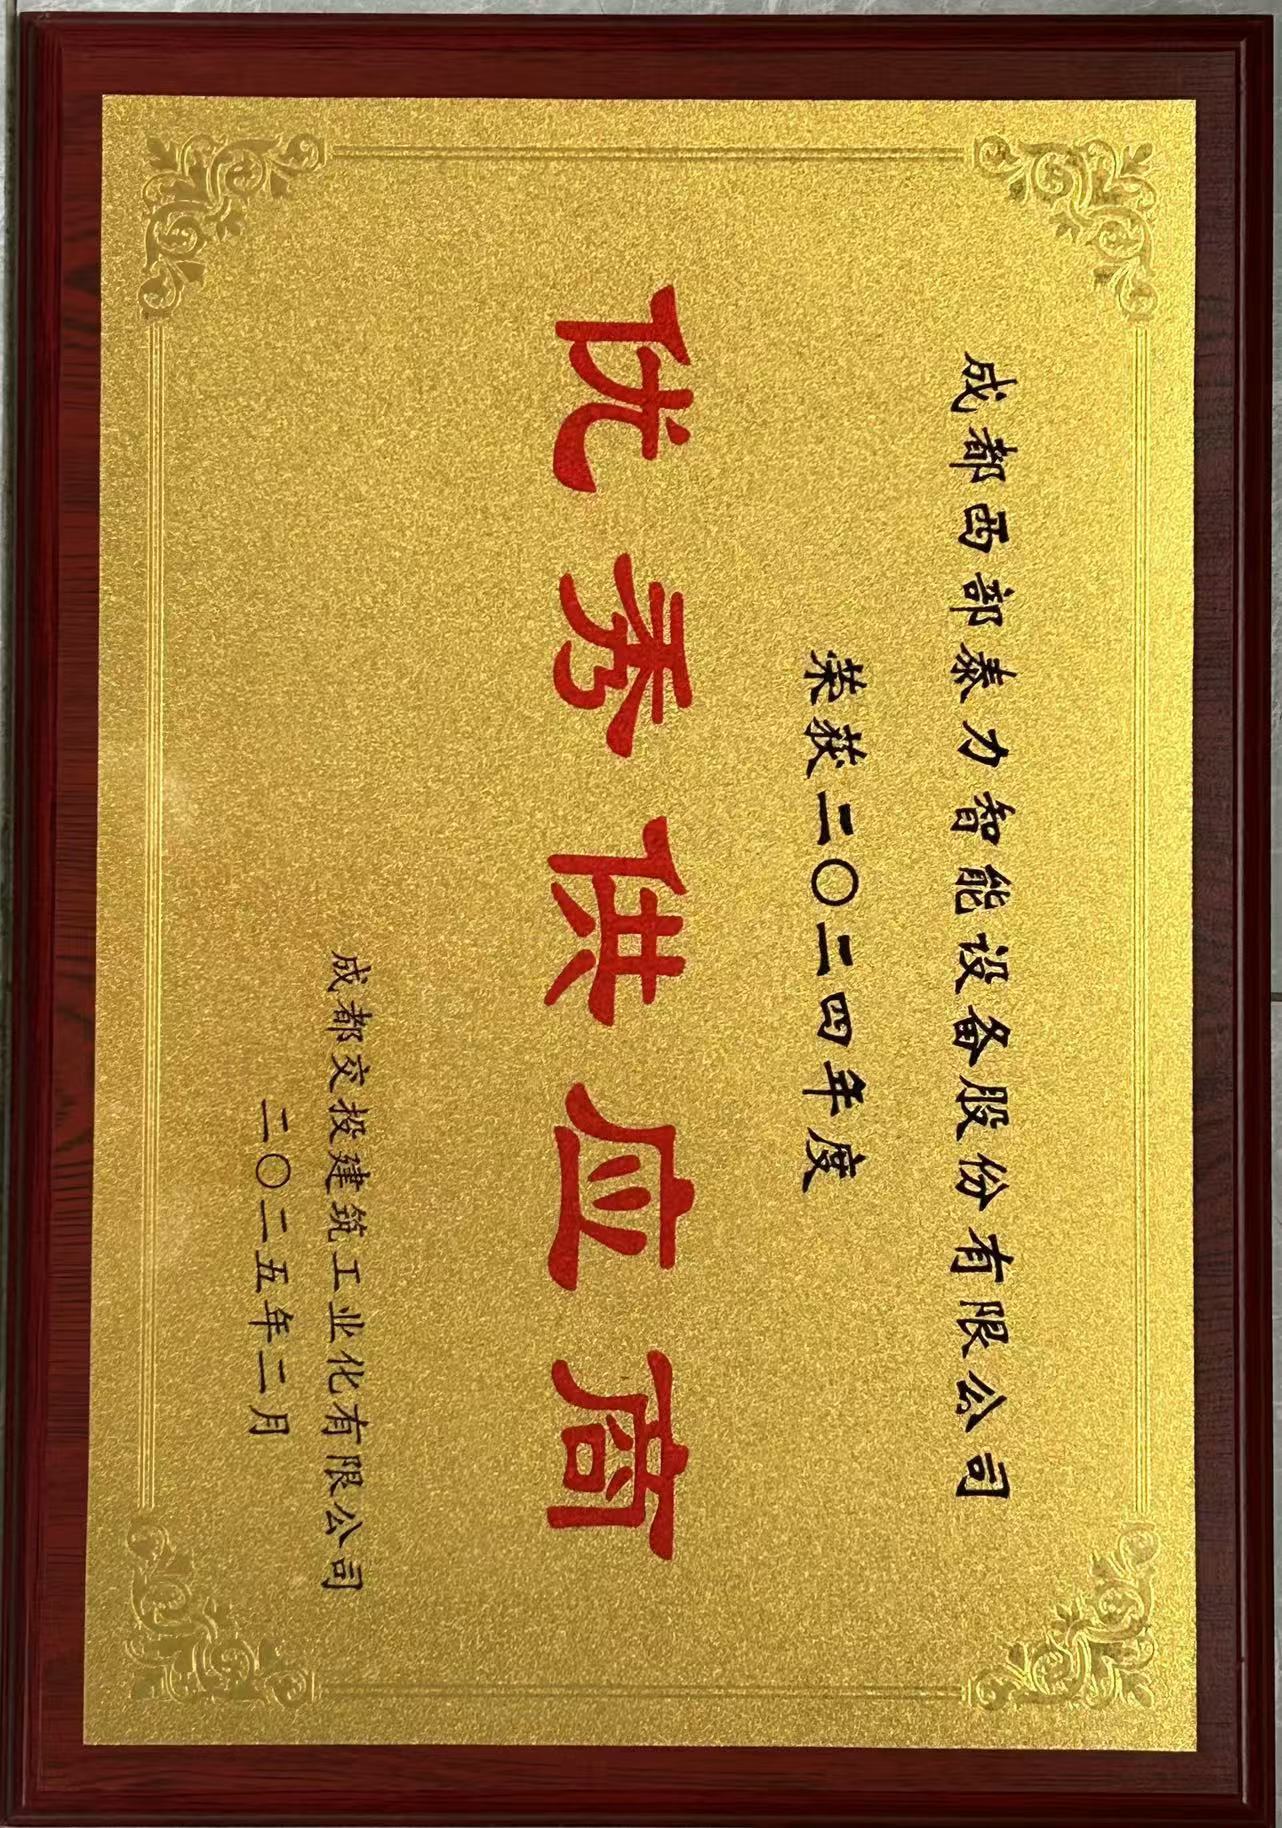 成都西部泰力智能设备股份有限公司
荣获二〇二四年度
优秀供应商
成都交投建筑工业化有限公司
二〇二五年二月